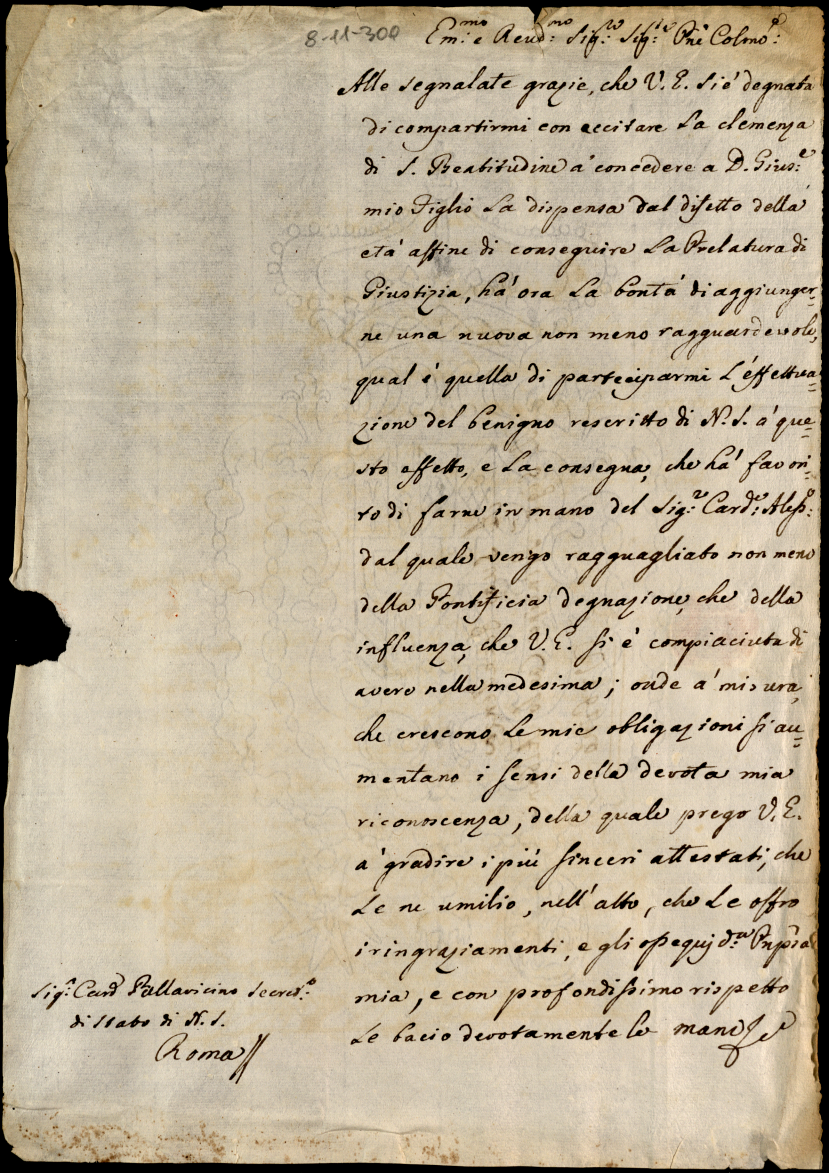 8-11-300
Em.mo e Reud.mo Sig.re Sig.re Pne Colmo:
Alle segnalate grazie, che V. E. si é degnata
di compartirmi con eccitare la clemenza
di S. Beatitudine a' concedere a D. Gius.e
mio Figlio la dispensa dal difetto della
età affine di conseguire la Prelatura di
Giustizia, há ora la bontá di aggiunger-
ne una nuova non meno ragguardevole,
qual é quella di participarmi l'effettua=
zione del benigno rescritto di N. S. a' que=
sto effetto, e la consegna, che há favori=
to di farne in mano del Sig.re Card.e Aless.o
dal quale vengo ragguagliato non meno
della Pontificia degnazione, che della
influenza, che V. E. si é compiaciuta di
avere nella medesima; onde a' misura,
che crescono le mie obligazioni si au=
mentano i sensi della devota mia
riconoscenza, della quale prego V. E.
a' gradire i piú sinceri attestati, che
Le ne umilio, nell'atto, che Le offro
i ringraziamenti, e gli ossequj d.
mia, e con profondissimo rispetto
Le bacio devotamente le mani
Sig.r Card Pallavicino Secret.o
di Stato di N. S.
Roma//